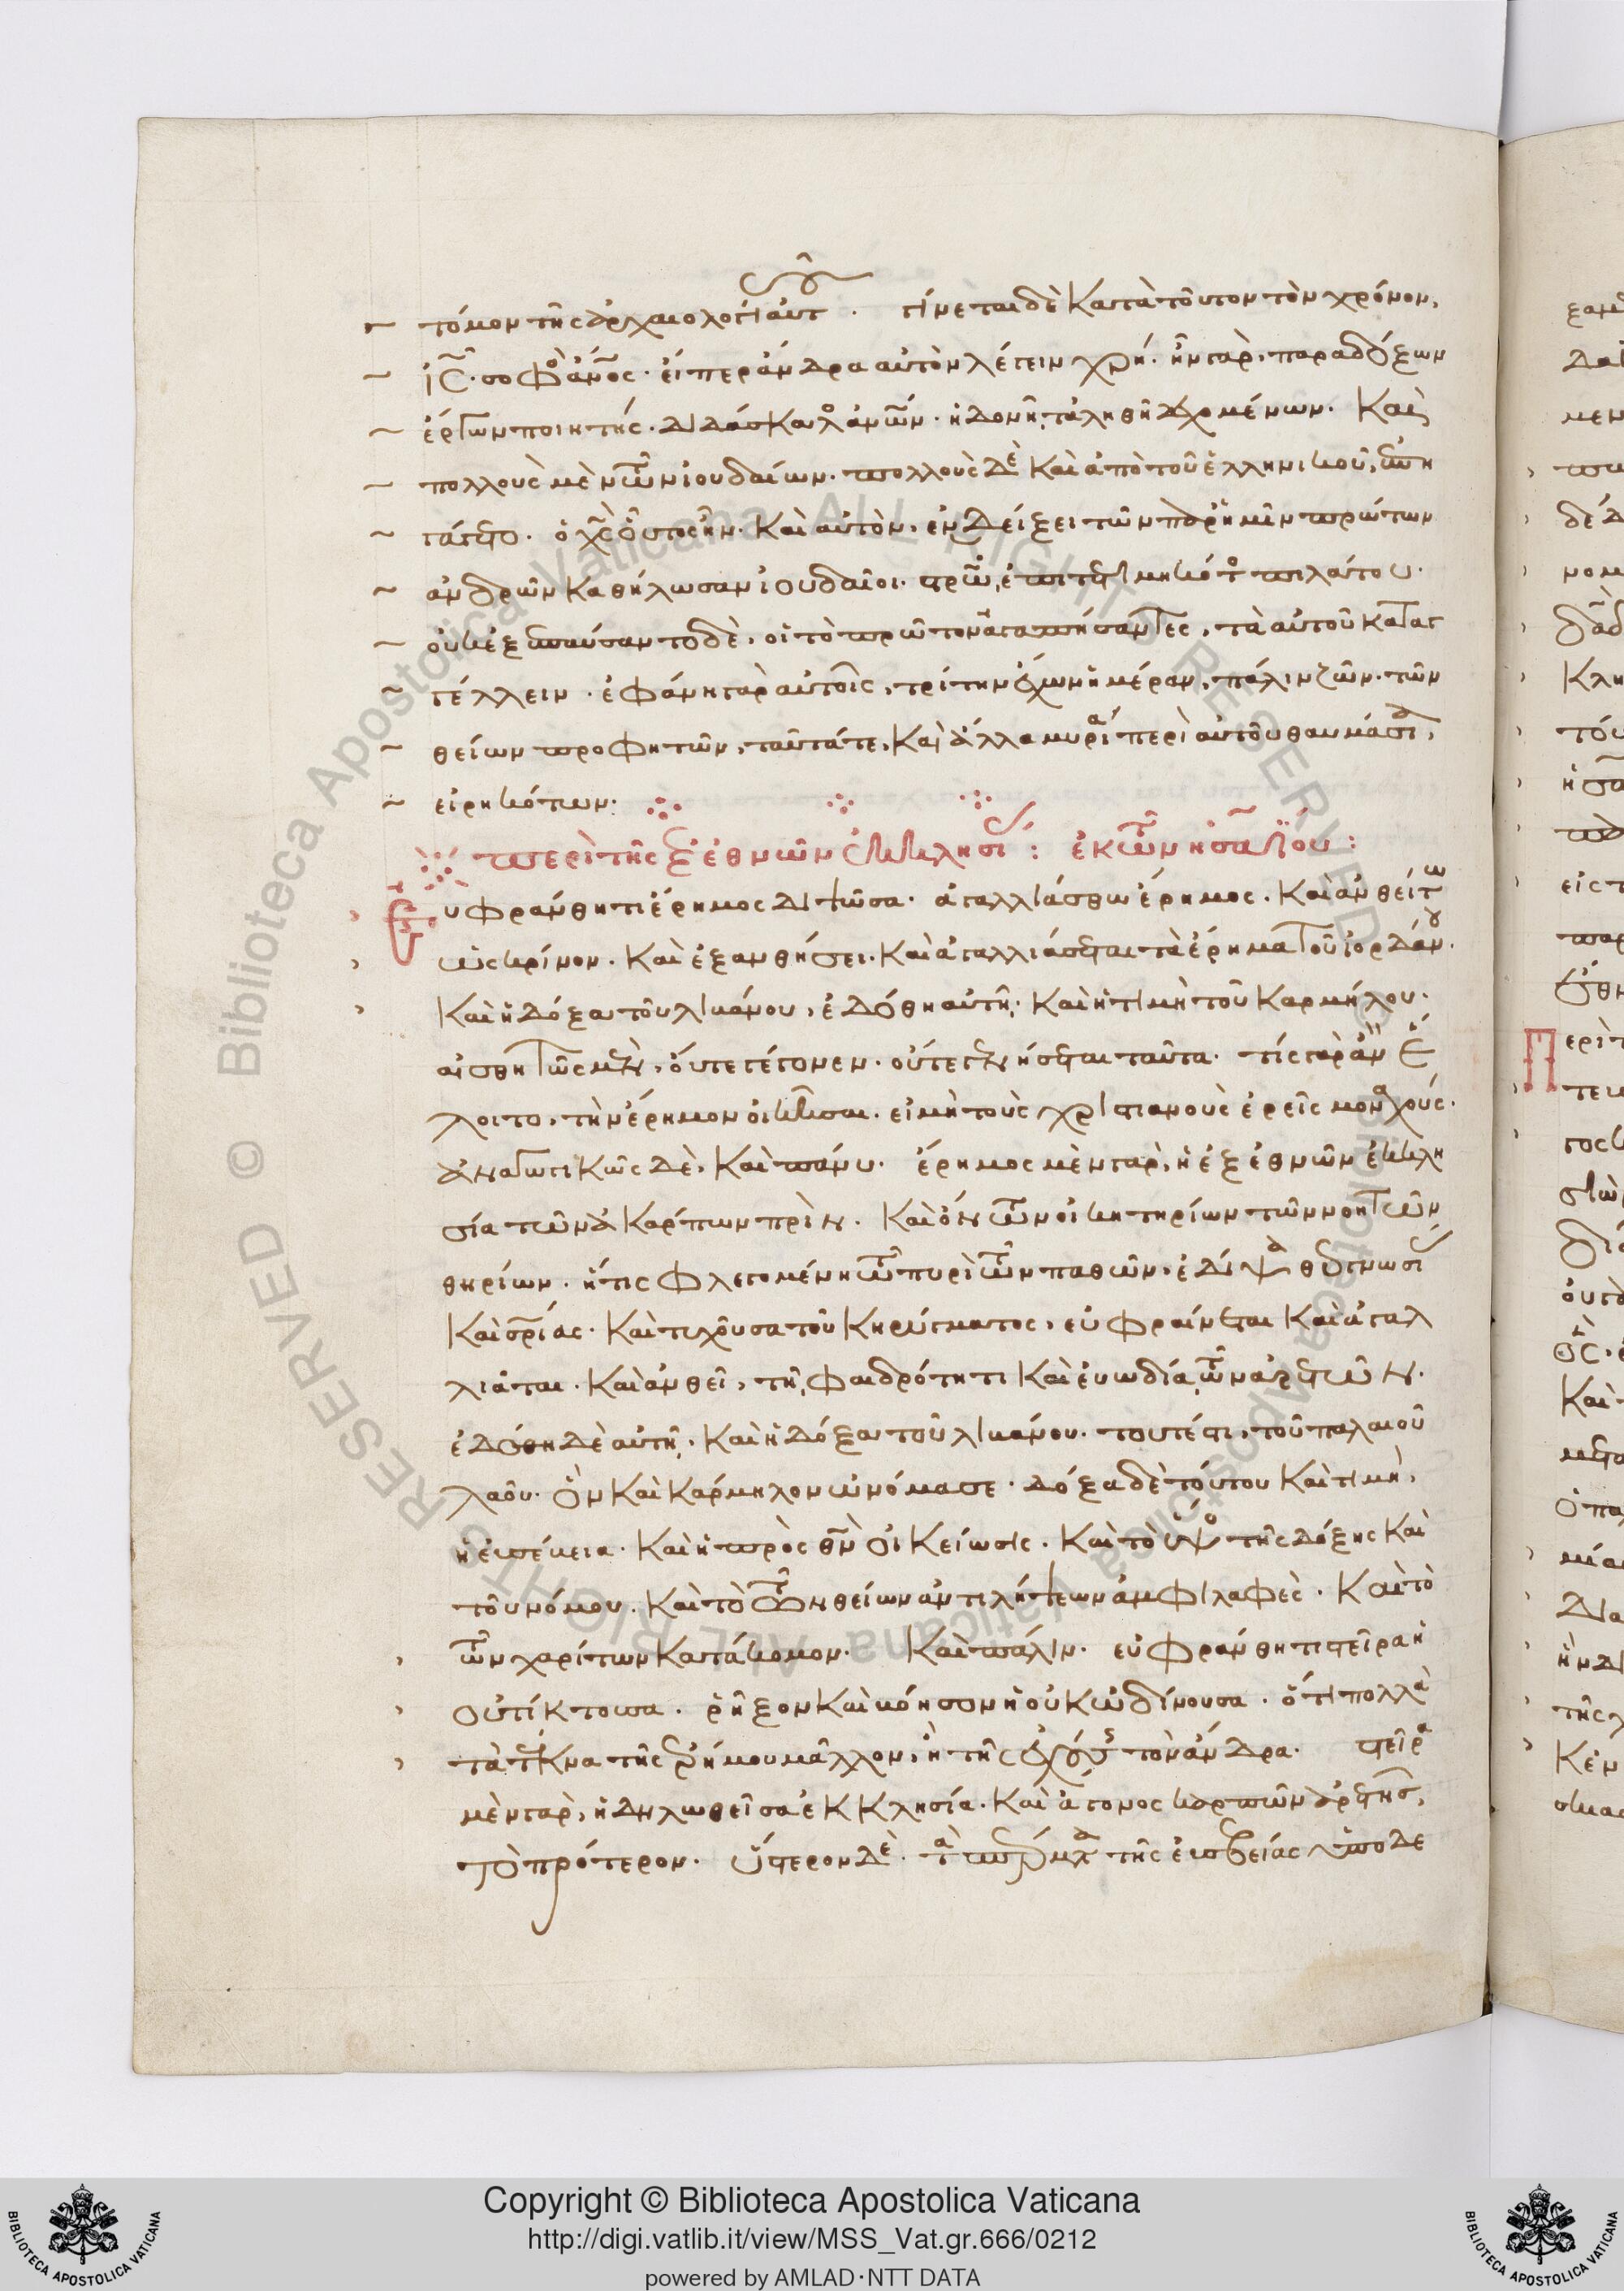 τόμον τῆς ἀρχαιολογίας αὐτ . γίνεται δὲ κατὰ τοῦτον τὸν χρόνον,
ἰς̅. σοφὸς ἀνος. εἴπερ ἄνδρα αὐτὸν λέγειν χρή. ἦν γὰρ, παραδόξων
ἔργων ποιητής. διδάσκαλος ἀνων. ἡδονῇ τἀληθῆ δεχομένων. καὶ
πολλοὺς μὲν τῶν ἰουδαίων. πολλοὺς δὲ καὶ ἀπὸ τοῦ ἑλληνικοῦ, ἐπη
γάγετο. ὁ χς̅ οὗτος ἦν. καὶ αὐτὸν, ἐνδείξει τῶν παρ' ἡμῖν πρώτων
ἀνδρῶν καθήλωσαν ἰουδαῖοι. στρω, ἐπιτετιμηκότος πιλάτου.
οὐκ ἐξεπαύσαντο δὲ, οἱ τὸ πρῶτον ἀγαπήσαντες, τὰ αὐτοῦ καταγ
γέλλειν. ἐφάνη γὰρ αὐτοῖς, τρίτην ἔχων ἡμέραν, πάλιν ζῶν. τῶν
θείων προφητῶν, ταῦτά τε, καὶ ἄλλα μυρία περὶ αὐτοῦ θαυμάσια,
εἰρηκότων:
περὶ τῆς ἐξ ἐθνῶν ἐκκλησί : ἐκ τῶν ἡσαΐου :
Εὐφράνθητι ἔρημος διψῶσα. ἀγαλλιάσθω ἔρημος. καὶ ἀνθείτω
ὡς κρίνον. καὶ ἐξανθήσει. καὶ ἀγαλλιάσεται τὰ ἔρημα τοῦ ἰορδάνου.
καὶ ἡ δόξα τοῦ λιβάνου, ἐδόθη αὐτῇ. καὶ ἡ τιμὴ τοῦ καρμήλου.
αἰσθητῶς μὲν, οὔτε γέγονεν. οὔτε γενήσεται ταῦτα. τίς γὰρ ἂν ἕ
λοιτο, τὴν ἔρημον οἰκῆσαι. εἰ μὴ τοὺς χριστιανοὺς ἐρεῖς μοναχούς.
ἀναγωγικῶς δὲ, καὶ πάνυ. ἔρημος μὲν γὰρ, ἡ ἐξ ἐθνῶν ἐκκλη
σία τῶν ἀκάρπων πρὶν. καὶ ὂν τῶν οἰκητηρίων τῶν νοητῶν
θηρίων. ἥτις φλεγομένη τῷ πυρὶ τῶν παθῶν, ἐδίψα θεογνωσί
καὶ σριας. καὶ τυχοῦσα τοῦ κηρύγματος, εὐφραίνεται καὶ ἀγαλ
λιᾶται. καὶ ἀνθεῖ, τῇ φαιδρότητι καὶ εὐωδίᾳ τῶν ἀρετῶν.
ἐδόθη δὲ αὐτῇ, καὶ ἡ δόξα τοῦ λιβάνου. τουτέστι, τοῦ παλαιοῦ
λαοῦ. ὃν καὶ κάρμηλον ὠνόμασε. δόξα δὲ τούτου καὶ τιμὴ,
ἡ εὐγένεια. καὶ ἡ πρὸς θν̅ οἰκείωσις. καὶ τὸ ὕψος τῆς δόξης καὶ
τοῦ νόμου. καὶ τὸ τῶν θείων ἀντιλήψεων ἀμφιλαφὲς. καὶ τὸ
τῶν χαρίτων κατάκομον. καὶ πάλιν. εὐφράνθητι στεῖρα ἡ
οὐ τίκτουσα. ῥῆξον καὶ βόησον ἡ οὐκ ὠδίνουσα. ὅτι πολλὰ
τὰ τέκνα τῆς ἐρήμου μᾶλλον, ἢ τῆς ἐχούσης τὸν ἄνδρα. στεῖρα
μὲν γὰρ, ἡ δηλωθεῖσα ἐκκλησία. καὶ ἄγονος καρπῶν ἀρετῆς,
τὸ πρότερον. ὕστερον δὲ. τὰ σπέρματα τῆς εὐσεβείας ὑποδε
Copyright © Biblioteca Apostolica Vaticana
http://digi.vatlib.it/view/MSS_Vat.gr.666/0212
powered by AMLAD·NTT DATA